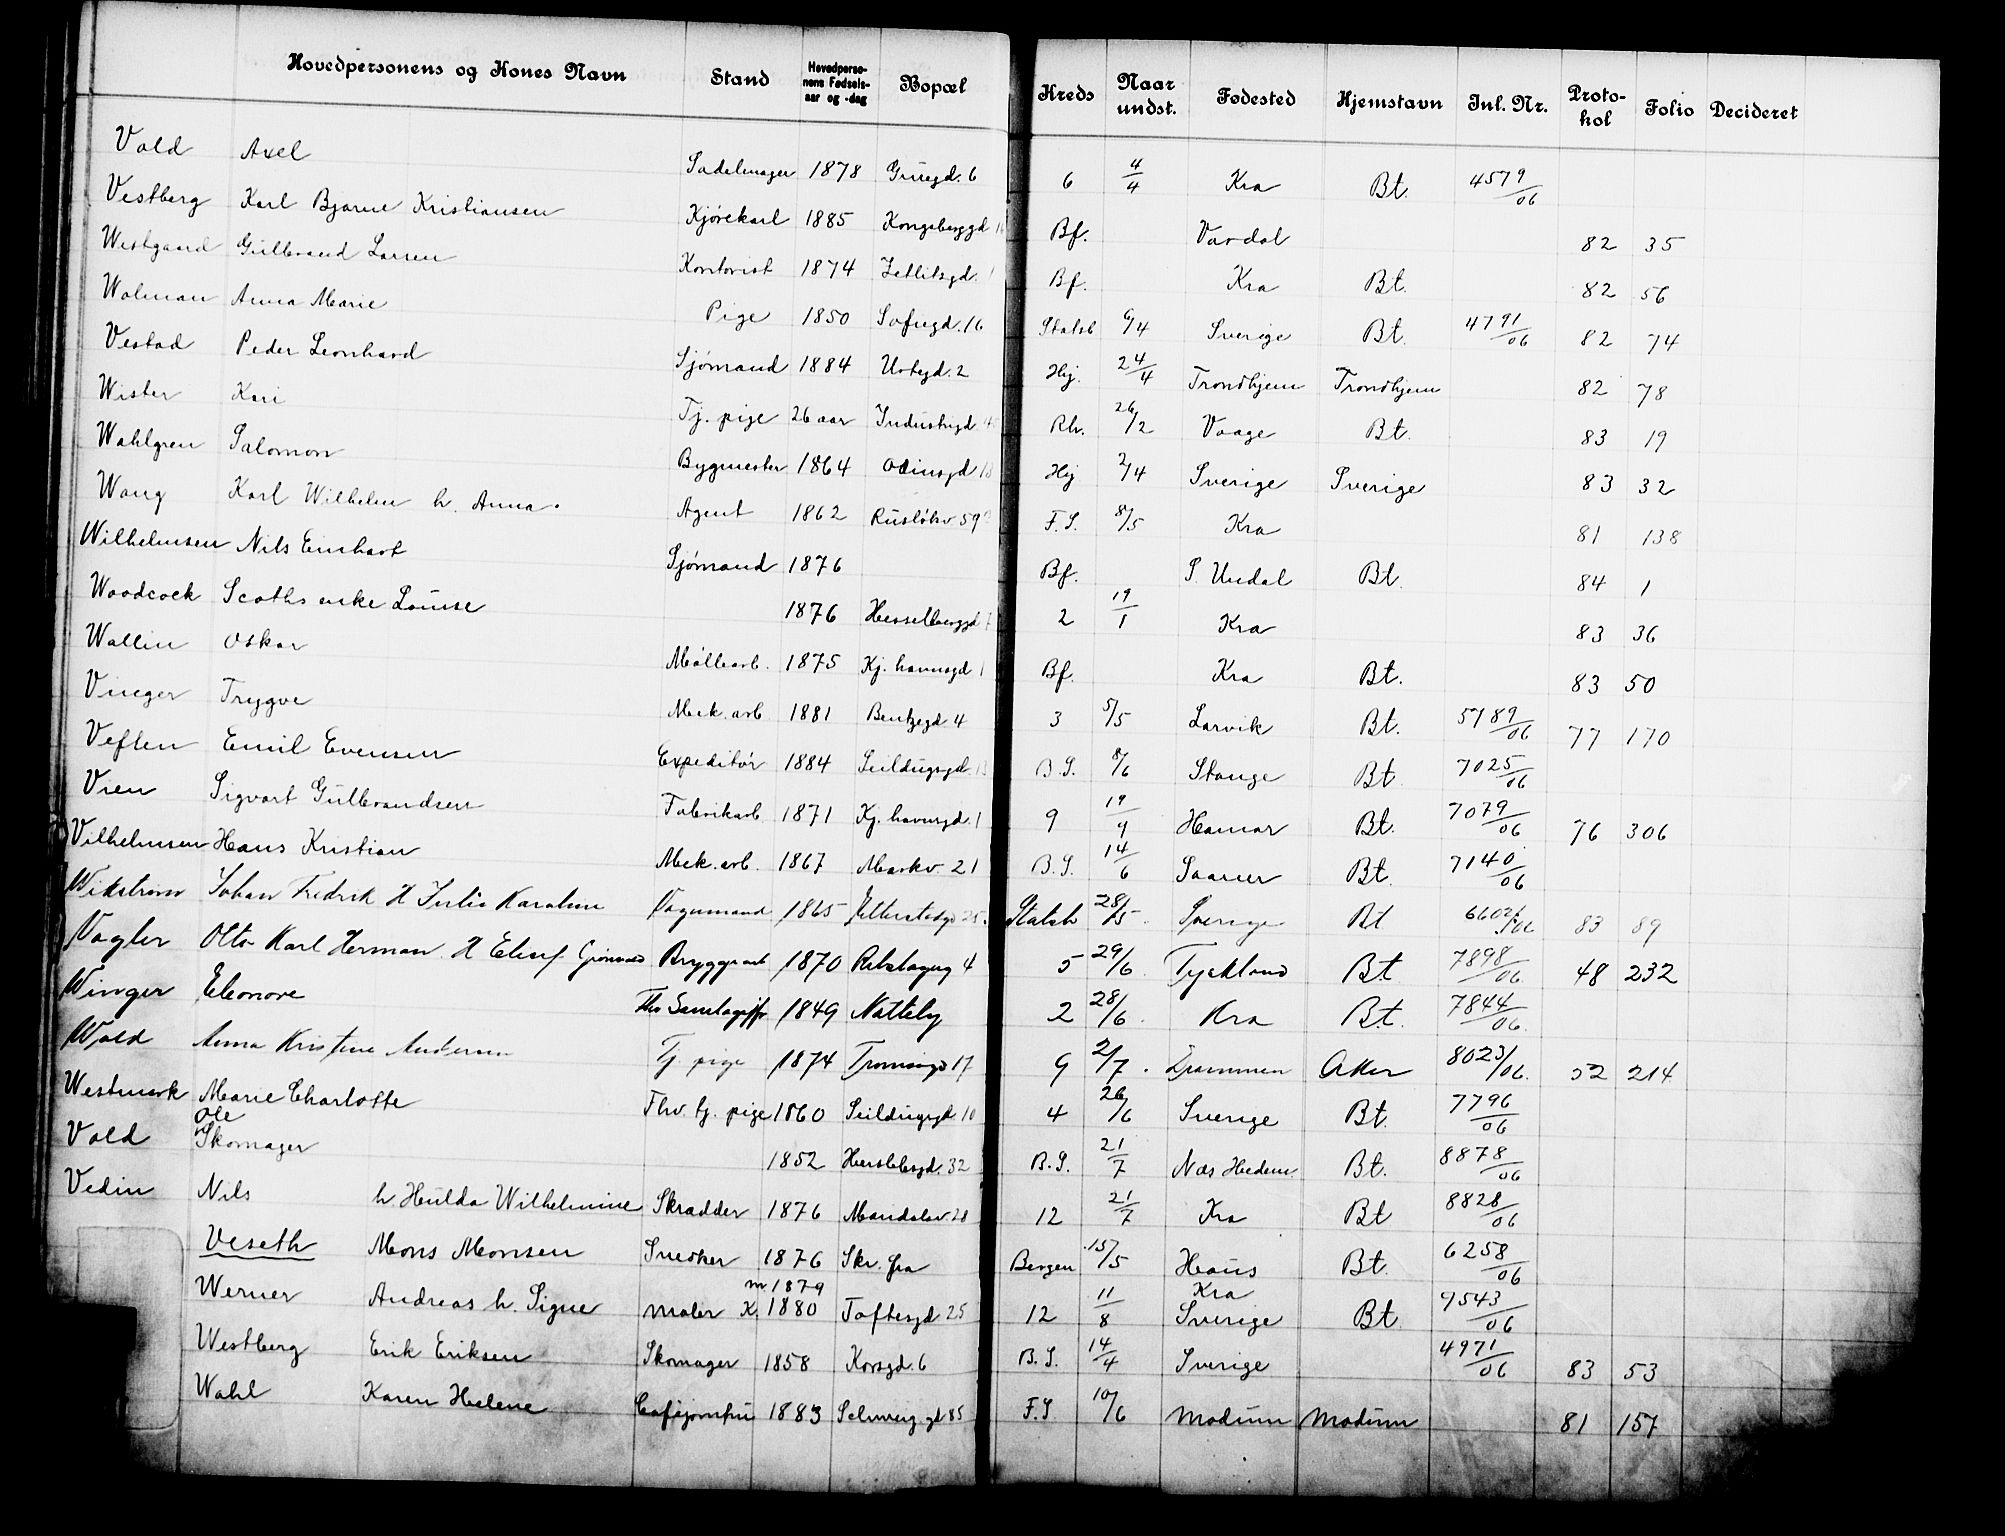 Hovedpersonens og Kones Navn Stand Hovedpersonens Fødselsaar og -dag Bopæl Kreds Naar undst. Fødested Hjemstavn Jnl. Nr. Protokol Folio Decideret
Vold Axel Sadelmager 1878 6 6 4/4 Kra Bt. 4579/06
Vestberg Karl Bjarne Kristiansen Kjørekarl 1885 Kongsberggd Bf. Vardal 82 35
Westgaard Gulbrand Larsen Kontorist 1874 Zetlitzgd. Bf. Kra Bt. 82 56
Wolman Anna Marie Pige 1850 Sofiegd. 16 Statsb 6/4 Sverige Bt. 4791/06 82 74
Vestad Peder Leonhard Sjømand 1884 Urtegd. 2 Hj. 24/4 Trondhjem Trondhjem 82 78
Wister Kari Tj. pige 26 aar Industrigd Rh. 26/2 Vaage Bt. 83 19
Wahlgren Salomon Bygmester 1864 Odinsgd Hj 2/4 Sverige Sverige 83 32
Wang Karl Wilhelm h. Anna. Agent 1862 Rusløkv 59 F.S. 8/5 Kra 81 138
Wilhelmsen Nils Einhart Sjømand 1876 Bf. S. Undal Bt. 84 1
Woodcock Scoths enke Louise 1876 Hesselberggd 2 19/1 Kra 83 36
Wallin Oskar Møllearb. 1875 Kj. havnsgd 1 Bf. Kra Bt. 83 50
Vinger Trygve Mek. arb 1881 Bentzegd 4 3 5/5 Larvik Bt. 5189/06 77 170
Veflen Emil Evensen Expeditør 1884 Seildugsgd. B.S. 8/6 Stange Bt. 7025/06
Vien Sigvart Gulbrandsen Fabrikarb 1871 Kj. havnsgd. 1 9 19/4 Hamar Bt. 7079/06 76 306
Vilhelmsen Hans Kristian Mek. arb. 1867 Markv. 21 B.S. 14/6 Bt. 7140/06
Wikstrøm Johan Fredrik H Julie Karoline Vognmand 1865 Statsb 28/5. Sverige Bt 6602/06 83 89
Vogler Otto Karl Herman. H Elisif Bryggeriarb 1870 4 5 29/6. Tyskland Bt 7898/06 48 232
Winger Eleonore 1849 Natteby 2 28/6. Kra Bt. 7844/06.
Wold Anna Kristine Andersen Tj. pige 1874 Tromsøgd 17 9 2/7. Drammen Aker 8023/06. 52 214
Westmark Marie Charlotte Fhv. tj. pige 1860 Seildugsgd 10 4 26/6 Sverige Bt. 7796/06
Ole
Vold Skomager 1852 Herslebsgd. 32 B.S. 21/7 Nes Hedem. Bt. 8878/06
Vedin Nils h. Hulda Wilhelmine Skrædder 1876 Mandalsv. 28 12 21/7 Kra Bt 8828/06
Veseth Mons Monsen Snedker 1876 Skr. fra Bergen 15/5 Haus Bt. 6258/06
m. 1879 Kra
Werner Andreas h. Signe Maler K. 1880 Toftesgd 25 12 11/8 Sverige Bt. 9543/06
Westberg Erik Eriksen Skomager 1858 Korsgd. 6 B.S. 14/4 Sverige 4971/06 83 53
Wahl Karen Helene Cafejomfru 1883 Schweig.gd 85 F.S 10/6 Modum Modum 81 157